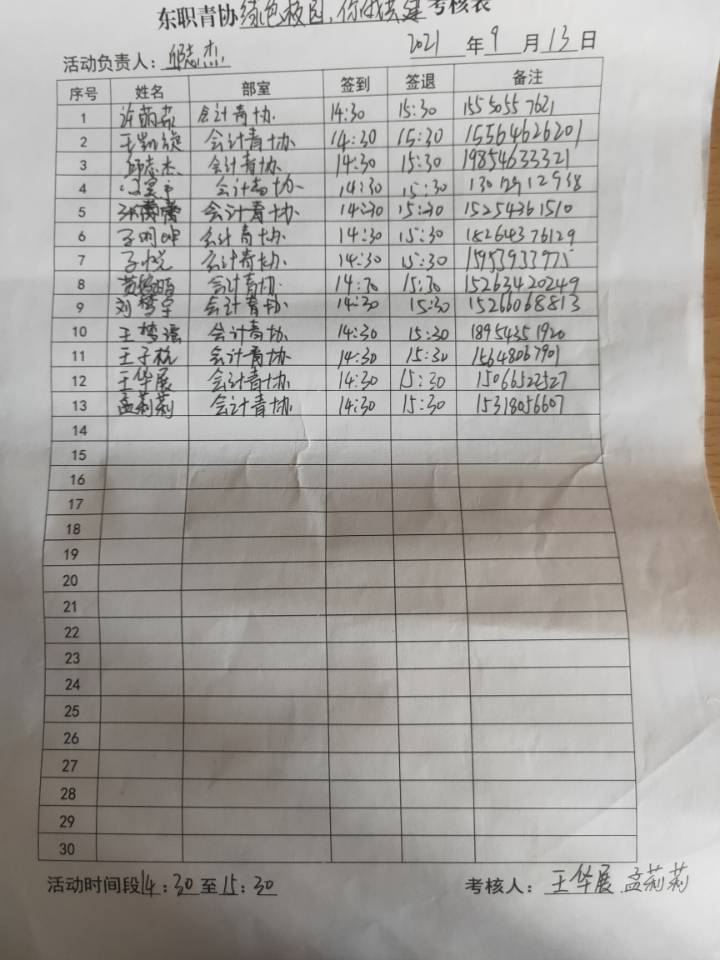 东职青协绿色校园,你我共建考核表
活动负责人: 邱志杰 2021 年 9 月 13 日
序号 姓名 部室 签到 签退 备注
1 会计青协 14:30 15:30 15550557621
2 王凯旋 会计青协 14:30 15:30 15564626201
3 邱志杰 会计青协 14:30 15:30 19854633321
4 会计青协 14:30 15:30 13012912938
5 会计青协 14:30 15:30 15254361510
6 会计青协 14:30 15:30 18264376129
7 会计青协 14:30 15:30 15953933975
8 会计青协 14:30 15:30 15263420249
9 刘梦宇 会计青协 14:30 15:30 15266068813
10 王梦瑶 会计青协 14:30 15:30 18954351920
11 王子杭 会计青协 14:30 15:30 15648067901
12 王华展 会计青协 14:30 15:30 15066522527
13 孟莉莉 会计青协 14:30 15:30 15318056607
14
15
16
17
18
19
20
21
22
23
24
25
26
27
28
29
30
活动时间段14:30至15:30 考核人: 王华展 孟莉莉